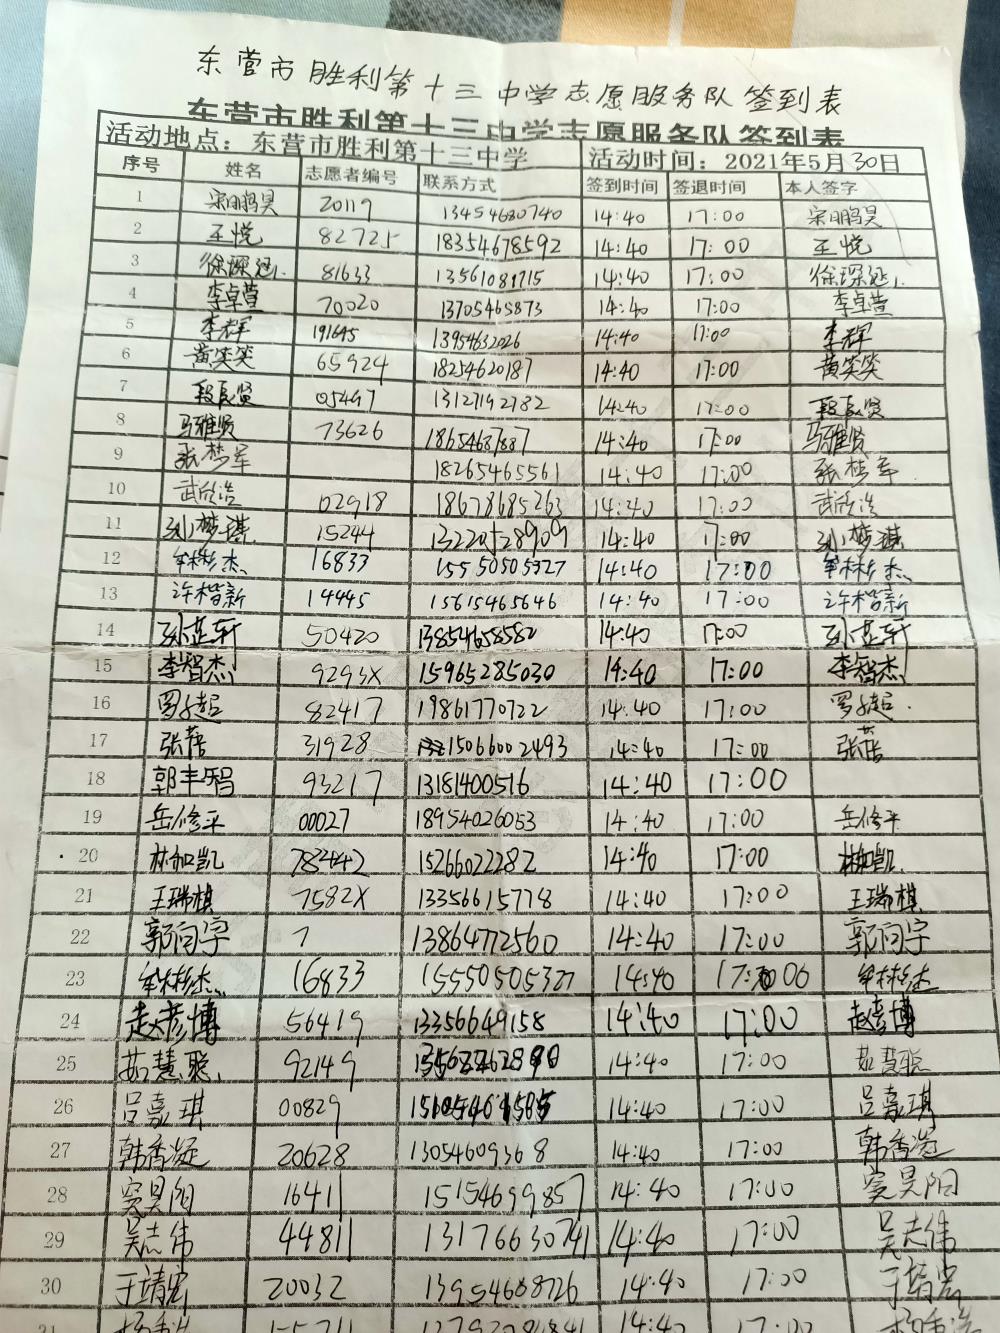 东营市胜利第十三中学志愿服务队签到表
东营市胜利第十三中学志愿服务队签到表
活动地点：东营市胜利第十三中学 活动时间：2021年5月30日
序号 姓名 志愿者编号 联系方式 签到时间 签退时间 本人签字
1 宋鹏昊 20119 13454680740 14:40 17:00 宋鹏昊
2 王悦 82725 18354678592 14:40 17:00 王悦
3 徐琛 81633 13561081715 14:40 17:00 徐琛
4 李卓萱 70020 13705465873 14:40 17:00 李卓萱
5 李辉 191645 13954632026 14:40 17:00 李辉
6 黄笑笑 65924 18254620187 14:40 17:00 黄笑笑
7 段辰贤 05497 13127192782 14:40 17:00 段辰贤
8 马雅贤 73626 18654687887 14:40 17:00 马雅贤
9 张梦军 18265465561 14:40 17:00 张梦军
10 武欣浩 02918 18678685263 14:40 17:00 武欣浩
11 孙梦琪 15244 13220528909 14:40 17:00 孙梦琪
12 牟彬杰 16833 15550505327 14:40 17:00 牟彬杰
13 许楷新 14445 15615465646 14:40 17:00 许楷新
14 孙莲轩 50420 13854658582 14:40 17:00 孙莲轩
15 李智杰 9293X 15965285030 14:40 17:00 李智杰
16 罗超 82417 19861770722 14:40 17:00 罗超
17 张蓓 31928 15066002493 14:40 17:00 张蓓
18 郭丰智 93217 13181400516 14:40 17:00
19 岳修平 00027 18954026053 14:40 17:00 岳修平
20 林如凯 78442 15266022282 14:40 17:00 林如凯
21 王瑞棋 7582X 13356615778 14:40 17:00 王瑞棋
22 郭向宇 7 13864772560 14:40 17:00 郭向宇
23 牟彬杰 16833 15550505327 14:40 17:00 牟彬杰
24 赵彦博 56419 13356649158 14:40 17:00 赵彦博
25 茹慧聪 92149 14:40 17:00 茹慧聪
26 吕嘉琪 00829 14:40 17:00 吕嘉琪
27 韩香凝 20628 13054609368 14:40 17:00 韩香凝
28 窦昊阳 16411 15154699857 14:40 17:00 窦昊阳
29 吴志伟 44811 13176630741 14:40 17:00 吴志伟
30 于靖宏 20032 13954608726 14:40 17:00 于靖宏
31 17:00